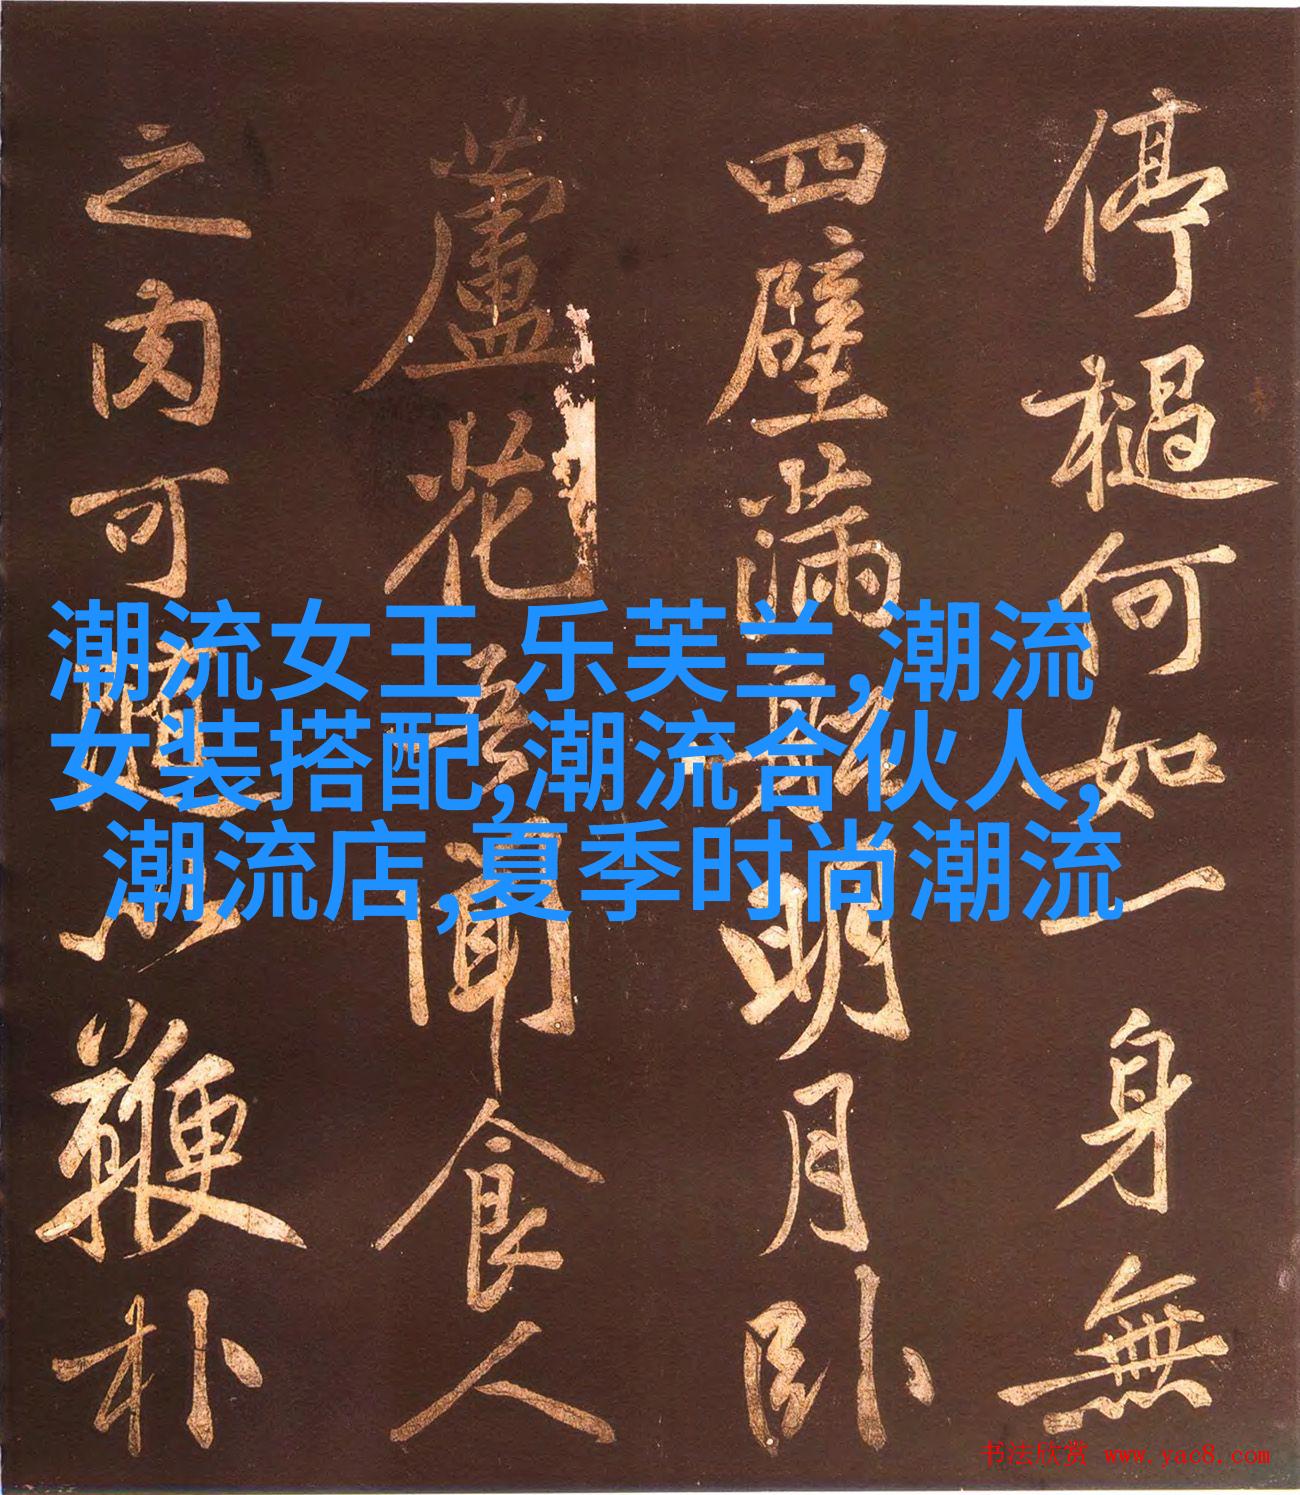 停檛何如一身無
四壁滿船明月卧
蘆花吾聞食人
之肉可隨以鞭朴
潮流女王,乐芙兰,潮流
女装搭配,潮流合伙人,
潮流店,夏季时尚潮流
书法欣赏 www.yac8.com